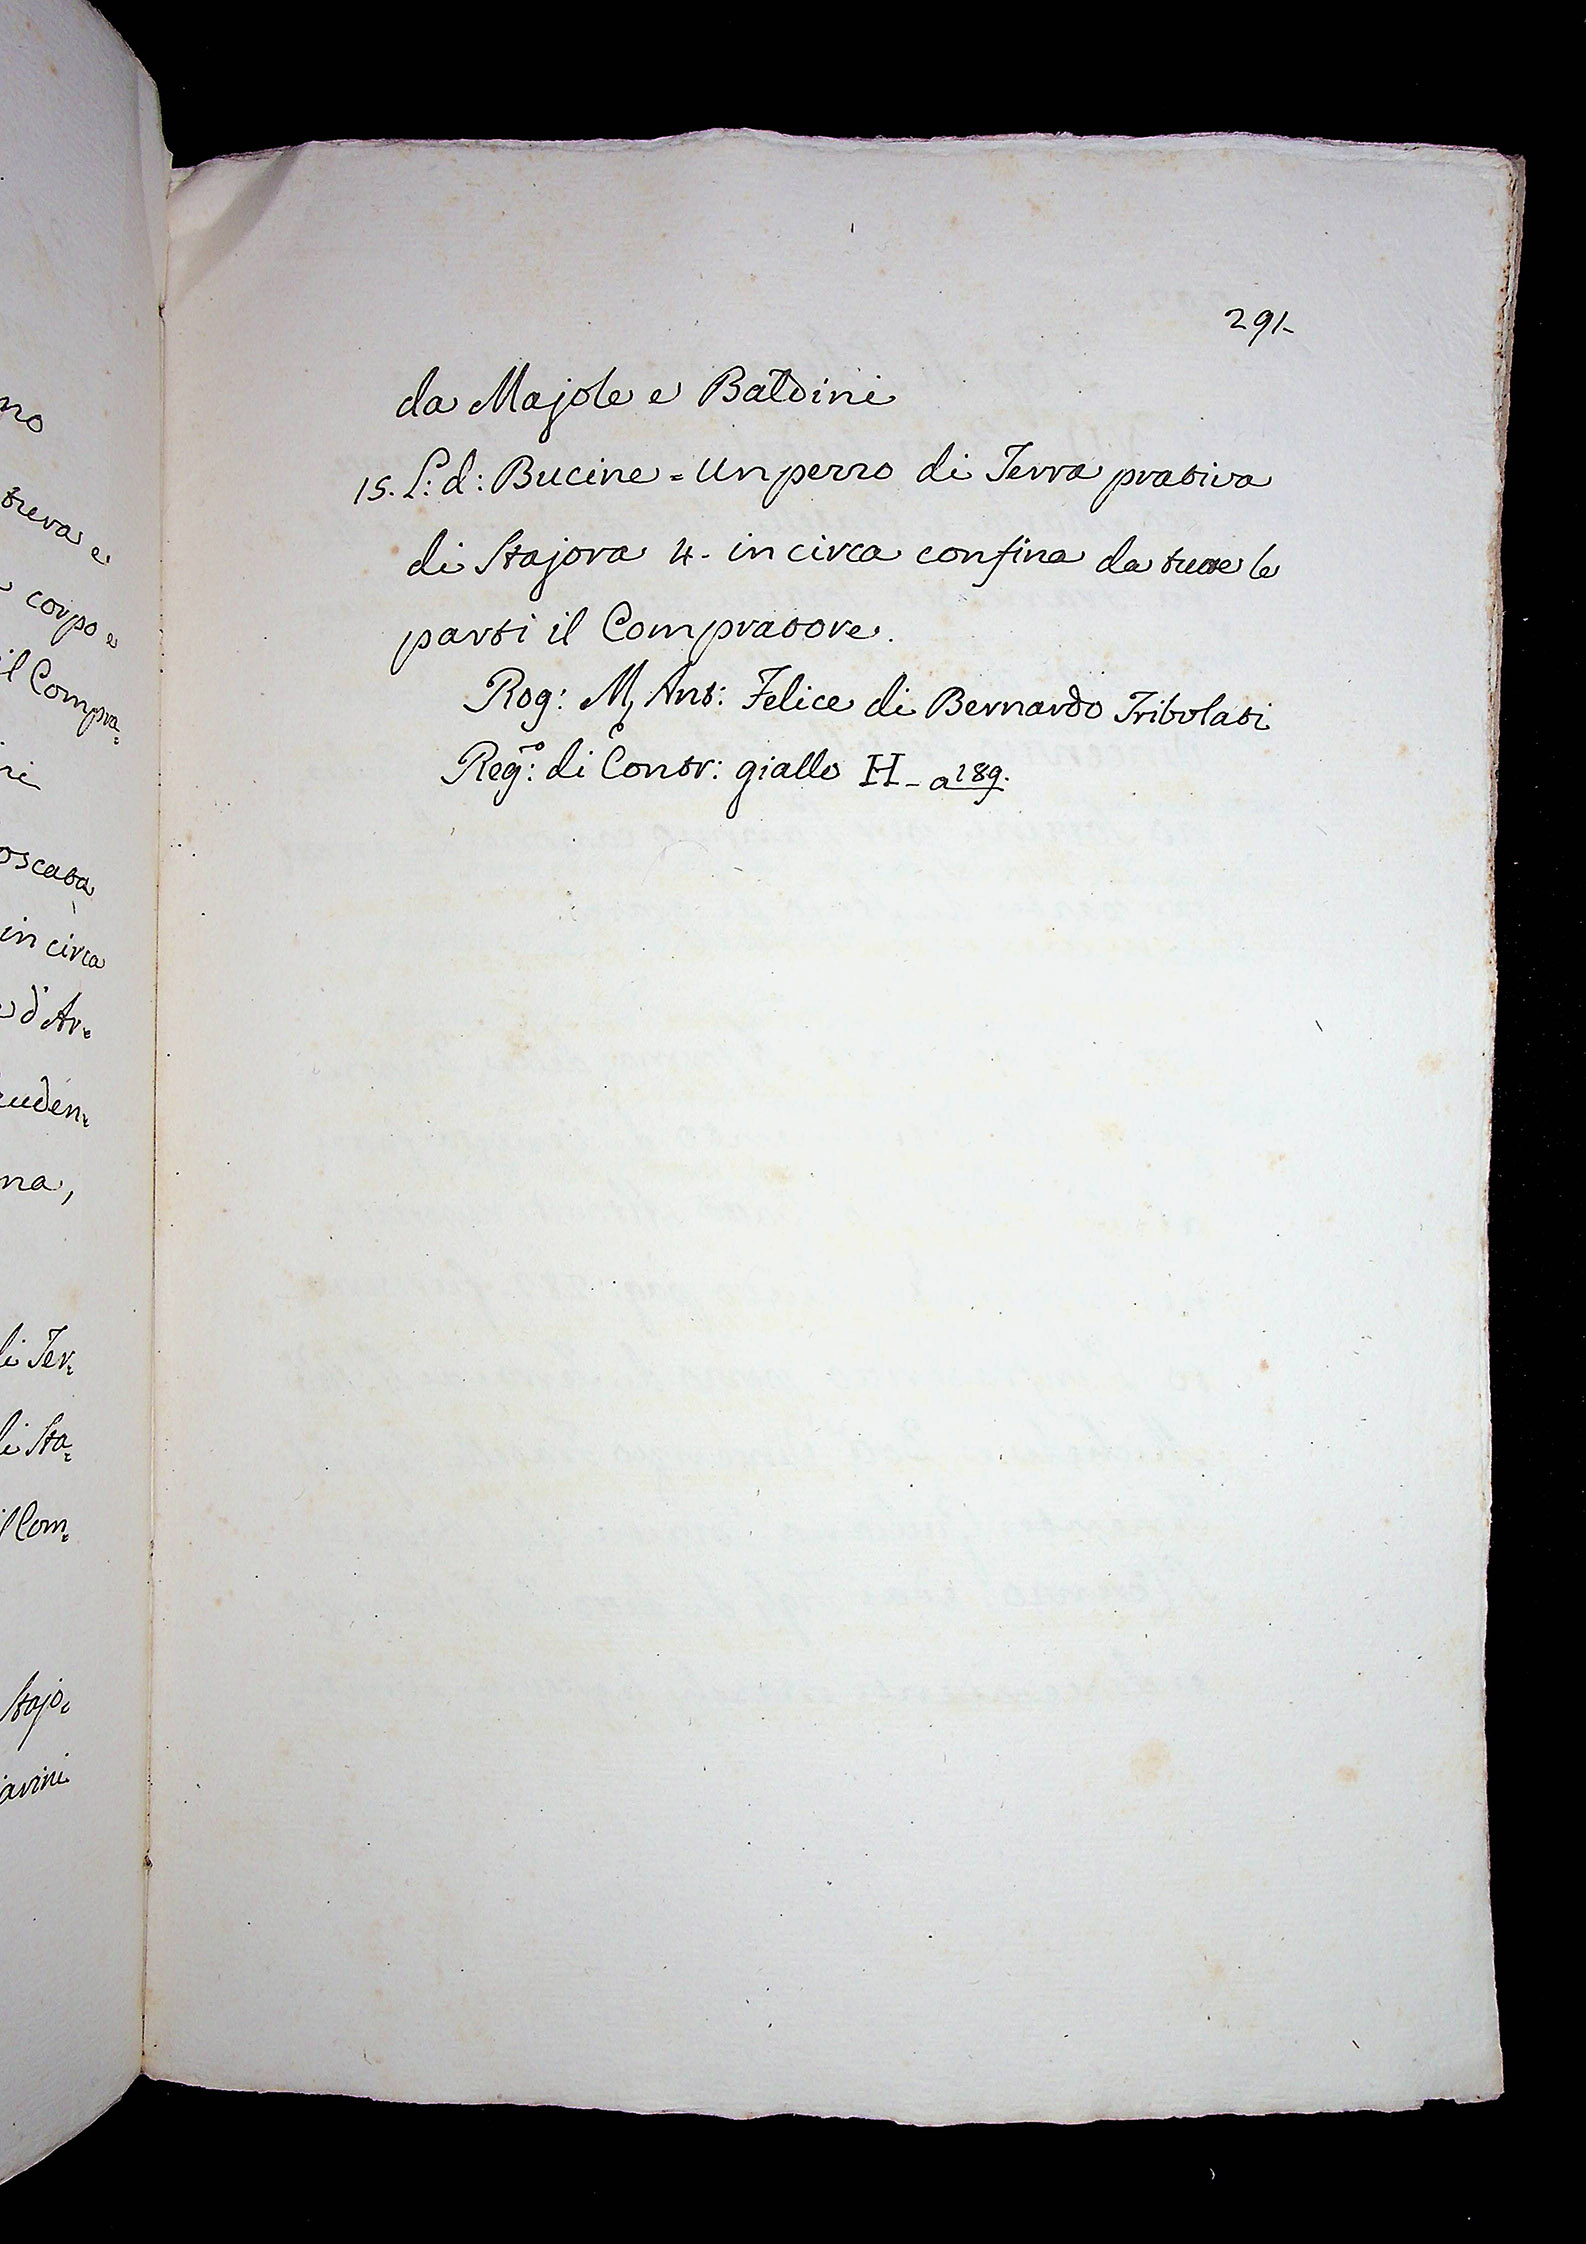 no
treva e
corpo e
il Compra=
ni
oscata
in circa
d'Ar=
uden=
na,
di Ter=
di Sta=
il Com=
Stajo=
arini
291-
da Majole e Baldini
15. L: d: Bucine = Un pezzo di Terra prativa
di Stajora 4- in circa confina da tutte le
parti il Compratore.
Rog: M, Ant: Felice di Bernardo Tribolati
Reg:ro di Contr:o giallo H - a 189.